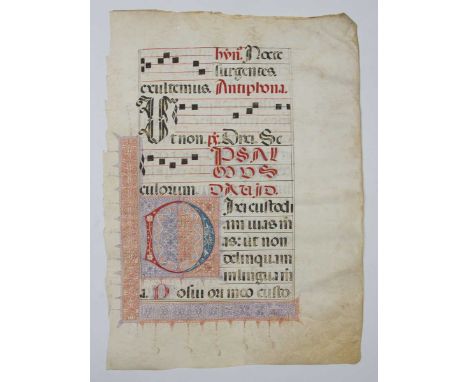 hỹn⁹. Nocte
surgentes.
exultemus. Antiphona.
Ut non. p̃. Dixi. Se
PSAL
MVS
culorum. DAVID.
Dixi custodi
am uias m̃
as: ut non
delinquam
in lingua m̃
a. Posui ori meo custo